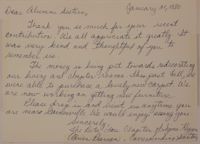 January 31, 1980
Dear Alumni Sisters,
Thank you so much for your recent
contribution. We all appreciate it greatly. It
was very kind and thoughtful of you to
remember us.
The money is being put towards redecorating
our living and chapter rooms. This past fall, we
were able to purchase a lovely new carpet. We
are now working on getting new furniture.
Please drop in and visit us anytime you
are near. We would enjoy seeing you.
Sincerely,
The Chapter
Corresponding Secretary